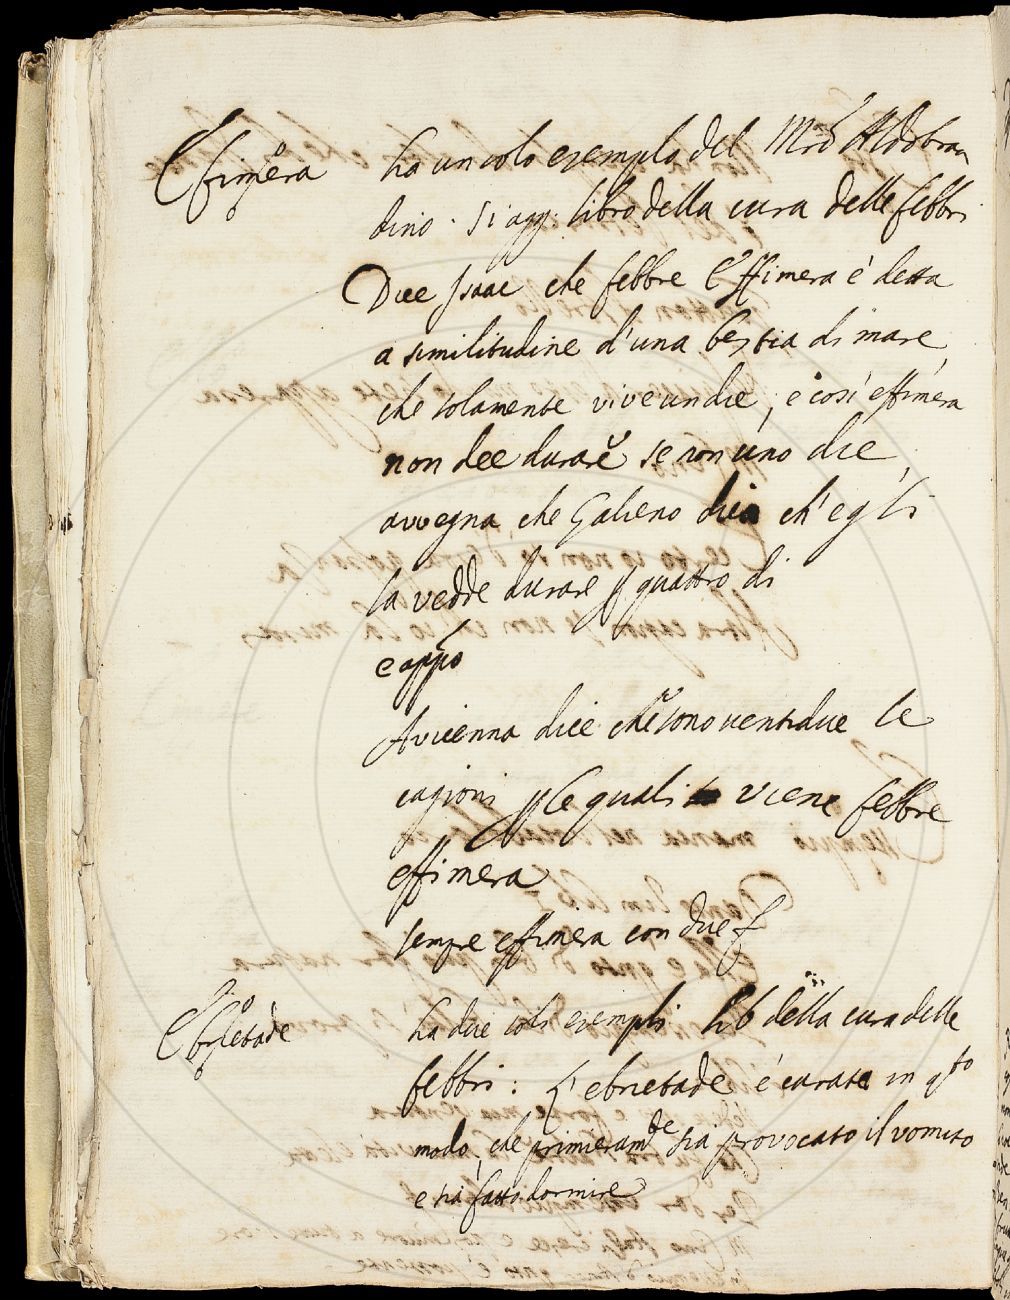 Effimera ha un solo esempio del Mrõ Aldobran
dino. Si agg. libro della cura delle febbri
Dice Isaac che febbre Effimera è detta
a similitudine d'una bestia di mare,
che solamente vive un die, e così effimera
non dee durare se non uno die,
avvegna che Galieno dica ch'egli
la vedde durare p quattro di
e appõ
Avicenna dice che sono ventidue le
cagioni p le quali viene febbre
effimera
sempre effimera con due f
Ebrietade ha due soli esempli lib della cura delle
febbri: L'ebrietade è curata in qto
modo, che primieramte sia provocato il vomito
e sia fatto dormire